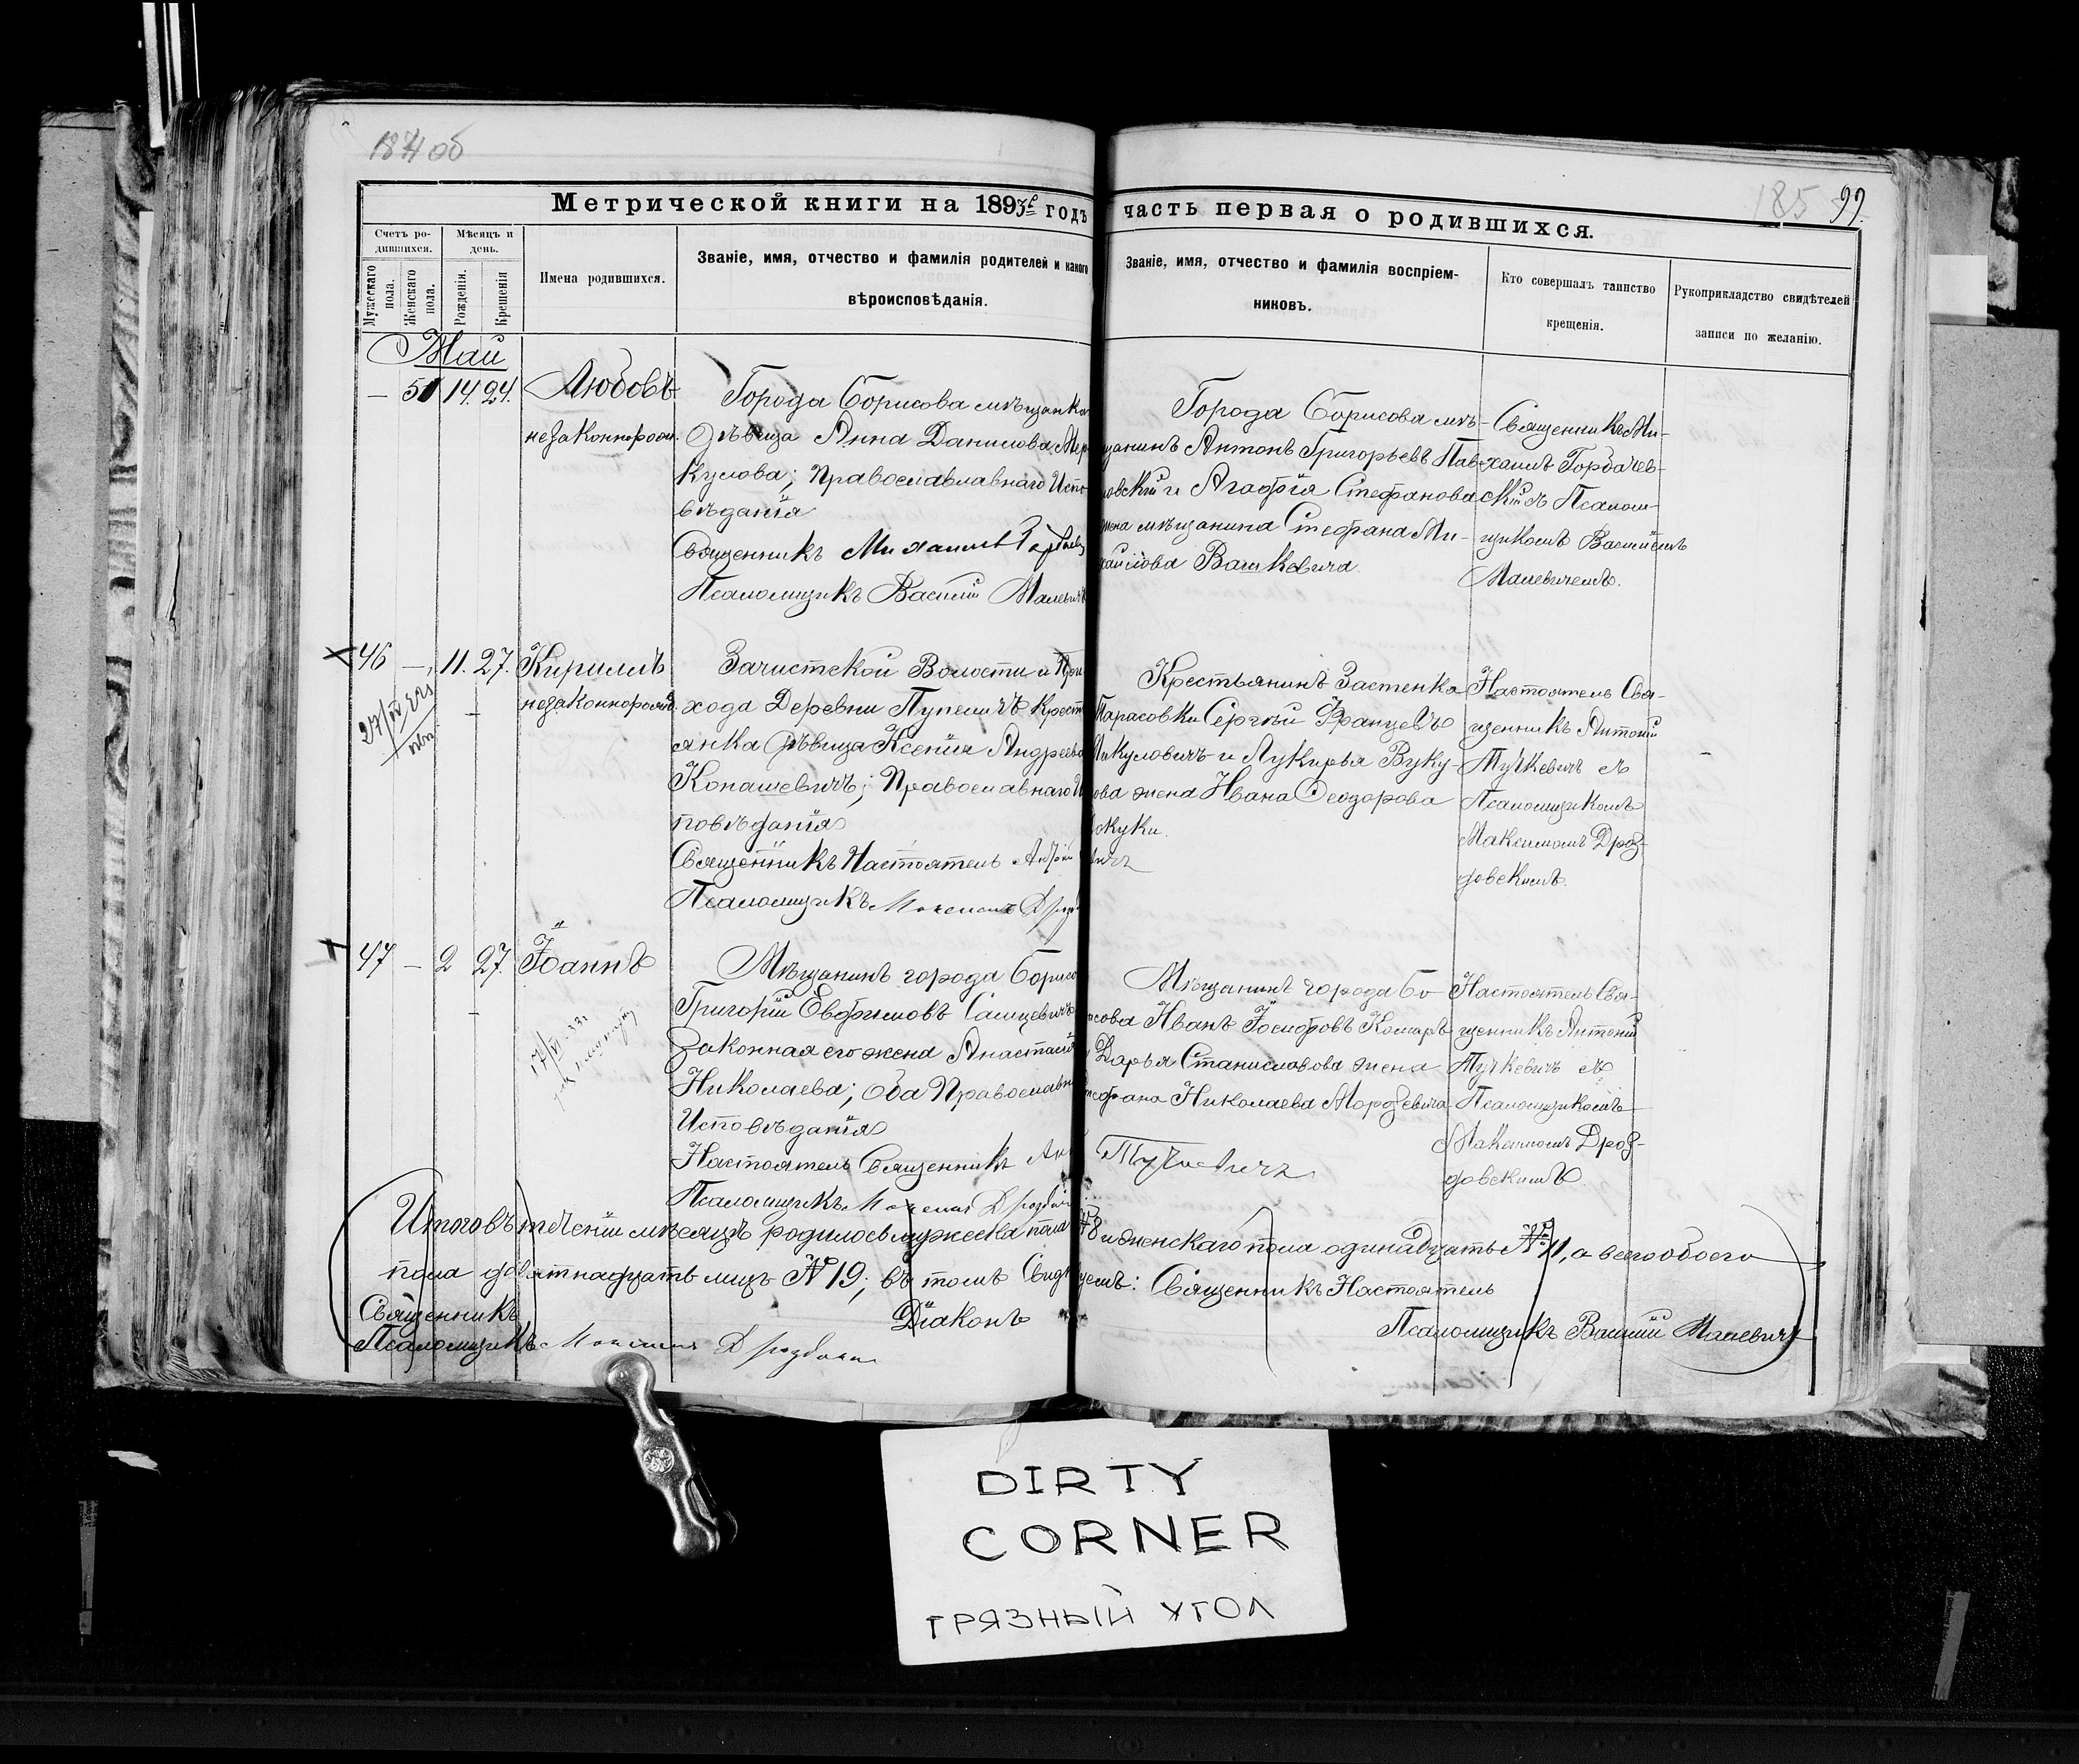 184 об
185 99.
Метрической книги на 1893й годъ часть первая о родившихся.
Счетъ ро-
дившихся.
Мужескаго пола.
Женскаго пола.
Мѣсяцъ и
день.
Рожденія.
Крещенія
Имена родившихся.
Званіе, имя, отчество и фамилія родителей и какого
вѣроисповѣданія.
Званіе, имя, отчество и фамилія воспріем-
никовъ.
Кто совершалъ таинство
крещенія.
Рукоприкладство свидѣтелей
записи по желанію.
Май
— 51 14. 24.
Любовь
незаконнорожд.
Города Борисова мѣщанка
дѣвица Анна Данилова Мер
кулова; Православнаго Испо
вѣданія
Священникъ Михаилъ
Псаломщикъ Василій Малевичъ
Города Борисова мѣ-
щанинъ Антонъ Григорьевъ Пав
ловскій и Агафія Стефанова
жена мѣщанина Стефана Ми-
хайлова Вашкевича
Священникъ Ми-
хаилъ Горбачев-
скій съ Псалом-
щикомъ Василіемъ
Малевичемъ.
46 — 11. 27.
Кириллъ
незаконнорожд.
Зачистской Волости и При
хода Деревни Пупеличъ Крест
янка дѣвица Ксенія Андреева
Копашевичъ; Православнаго И
повѣданія
Священникъ Настоятель Антоній
Псаломщикъ Максимъ Дрозд
Крестьянинъ Застенка
Тарасовки Сергѣй Францевъ
Микуловичъ и Лукирья Вуку-
лова жена Ивана Феодорова
скуки.
Настоятель Свя-
щенникъ Антоній
Тучкевичъ съ
Псаломщикомъ
Максимомъ Дроз-
довскимъ.
47 — 2 27.
Іоаннъ
Мѣщанинъ города Борисо
Григорій Евфимовъ Сацевичъ
Законная его жена Анастасія
Николаева; оба Православн
Исповѣданія
Настоятель Священникъ Ан
Тучкевичъ
Псаломщикъ Максимъ Дроздовск
Мѣщанинъ города Бо
рисова Иванъ Іосифовъ Комаръ
и Дарья Станиславова жена
Стефана Николаева Морозевича
Настоятель Свя-
щенникъ Антоній
Тучкевичъ съ
Псаломщикомъ
Максимомъ Дроз-
довскимъ.
Итого въ теченіи мѣсяцѣ родилось мужеска пола 8 и женскаго пола одинадцать № 11, а всего обоего
пола девятнадцать лицъ № 19; въ томъ Свидѣтельствуемъ: Священникъ Настоятель
Священникъ
Діаконъ
Псаломщикъ Максимъ Дроздовскій
Псаломщикъ Василій Малевичъ
DIRTY
CORNER
ГРЯЗНЫЙ УГОЛ